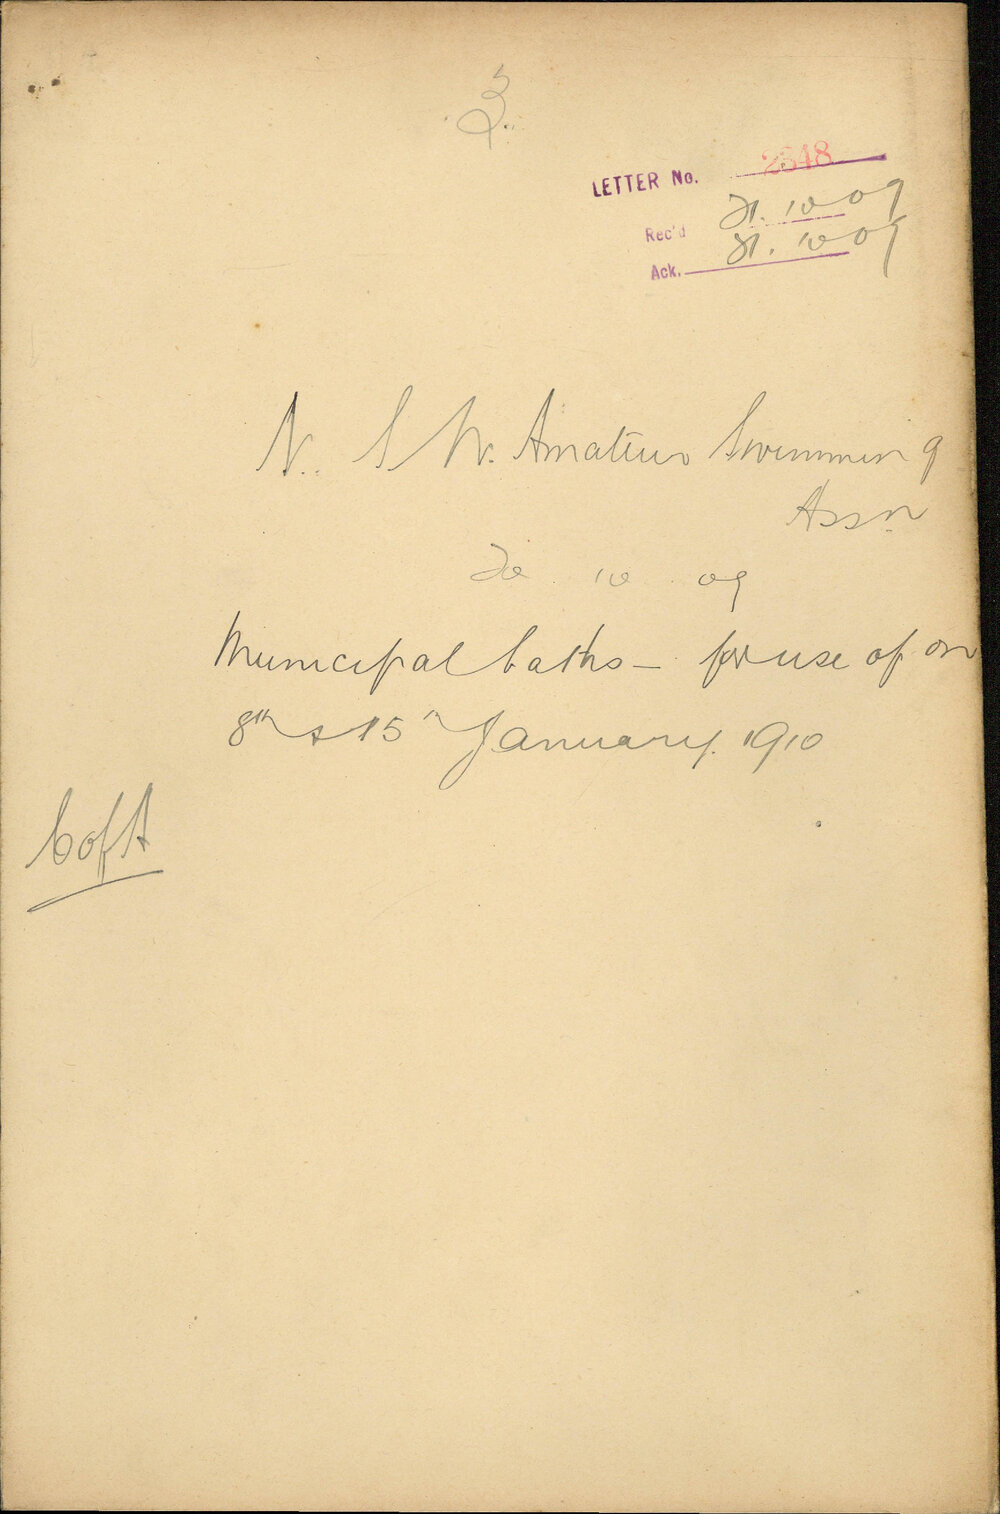 LETTER No. 2548
Rec'd 21. 10 09
Ack. 21. 10 09
N. S W. Amateur Swimming
Assn
20 10 09
Municipal baths — for use of on
8th & 15th January. 1910
C of A